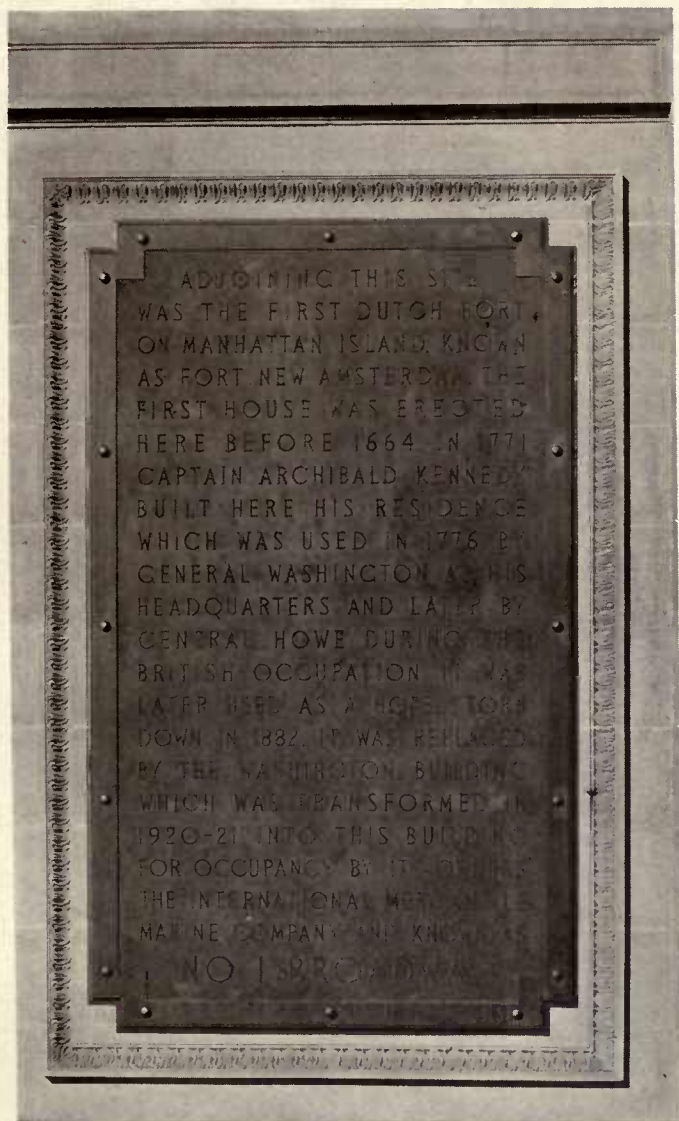 ADJOINING THIS SITE
WAS THE FIRST DUTCH FORT
ON MANHATTAN ISLAND, KNOWN
AS FORT NEW AMSTERDAM. THE
FIRST HOUSE WAS ERECTED
HERE BEFORE 1664. IN 1771
CAPTAIN ARCHIBALD KENNEDY
BUILT HERE HIS RESIDENCE
WHICH WAS USED IN 1776 BY
GENERAL WASHINGTON AS HIS
HEADQUARTERS AND LATER BY
GENERAL HOWE DURING THE
BRITISH OCCUPATION. IT WAS
LATER USED AS A HOTEL. TORN
DOWN IN 1882, IT WAS REPLACED
BY THE WASHINGTON BUILDING
WHICH WAS TRANSFORMED IN
1920-21 INTO THIS BUILDING
FOR OCCUPANCY BY ITS
THE INTERNATIONAL MERCANTILE
MARINE COMPANY AND KNOWN AS
NO 1 BROADWAY